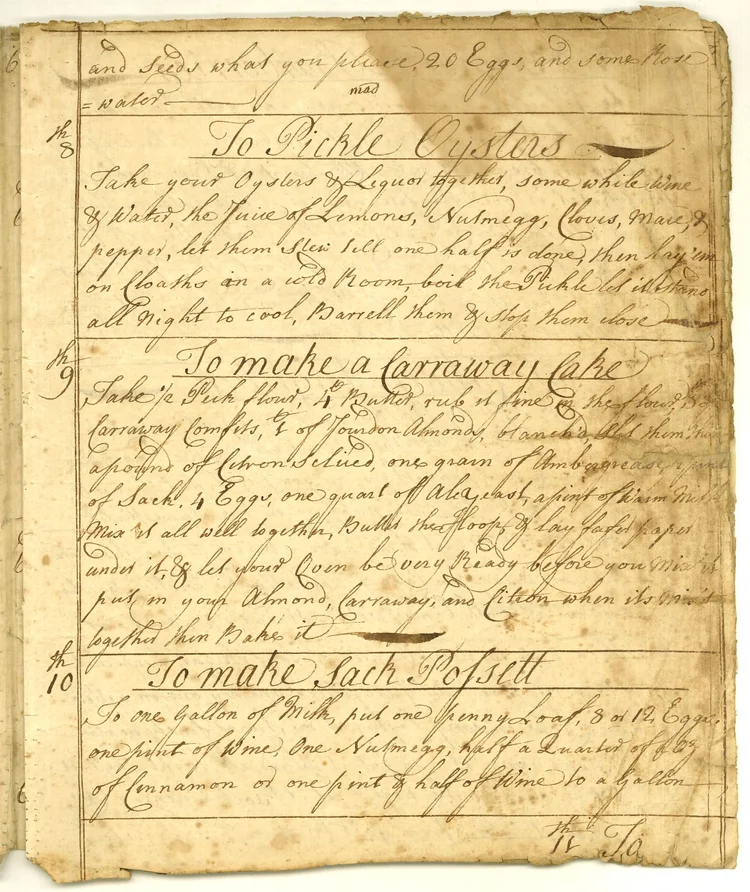 and Seeds what you please, 20 Eggs, and some Rose
= water
mad
8th To Pickle Oysters
Take your Oysters & Liquor together, some while wine
& Water, the Juice of Lemons, Nutmegg, Cloves, Mace, &
pepper, let them Stew till one half is done, then lay 'em
on Cloaths in a cold Room, boil the Pickle let it stand
all Night to cool, Barrell them & stop them close
9th To make a Carraway Cake
Take ½ Peck flour, 4lb Butter, rub it fine in the flour,
Carraway Comfits, lb1 of Jourdon Almonds, blanch'd, Cut them thin
a pound of Citron Sliced, one grain of Ambergrease, a pint
of Sack, 4 Eggs, one quart of Ale yeast, a pint of Warm Milk
Mix it all well together, Butter the Hoop, & lay paper
under it, & let your Oven be very Ready before you Mix it
put in your Almond, Carraway, and Citron when its Mix't
together then Bake it
10th To make Sack Possett
To one Gallon of Milk, put one penny Loaf, 8 or 12, Eggs,
one pint of Wine, One Nutmegg, half a Quarter of a Oz
of Cinnamon or one pint & half of Wine to a Gallon
11th To